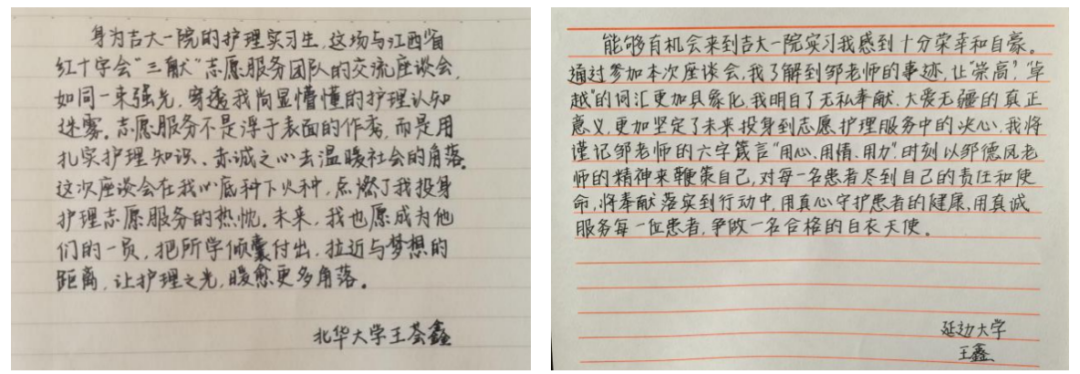 身为吉大一院的护理实习生，这场与江西省
红十字会“三献”志愿服务团队的交流座谈会，
如同一束强光，穿透我尚显懵懂的护理认知
迷雾。志愿服务不是浮于表面的作秀，而是用
扎实护理知识、赤诚之心去温暖社会的角落。
这次座谈会在我心底种下火种，点燃了我投身
护理志愿服务的热忱。未来，我也愿成为他
们的一员，把所学倾囊付出，拉近与梦想的
距离，让护理之光，暖愈更多角落。
北华大学王荟鑫
能够有机会来到吉大一院实习我感到十分荣幸和自豪。
通过参加本次座谈会，我了解到邹老师的事迹，让“崇高”，“卓
越”的词汇更加具象化，我明白了无私奉献，大爱无疆的真正
意义，更加坚定了未来投身到志愿护理服务中的决心，我将
谨记邹老师的六字箴言“用心、用情、用力”.时刻以邹德凤老
师的精神来鞭策自己，对每一名患者尽到自己的责任和使
命，将奉献落实到行动中，用真心守护患者的健康，用真诚
服务每一位患者，争做一名合格的白衣天使。
延边大学
王鑫